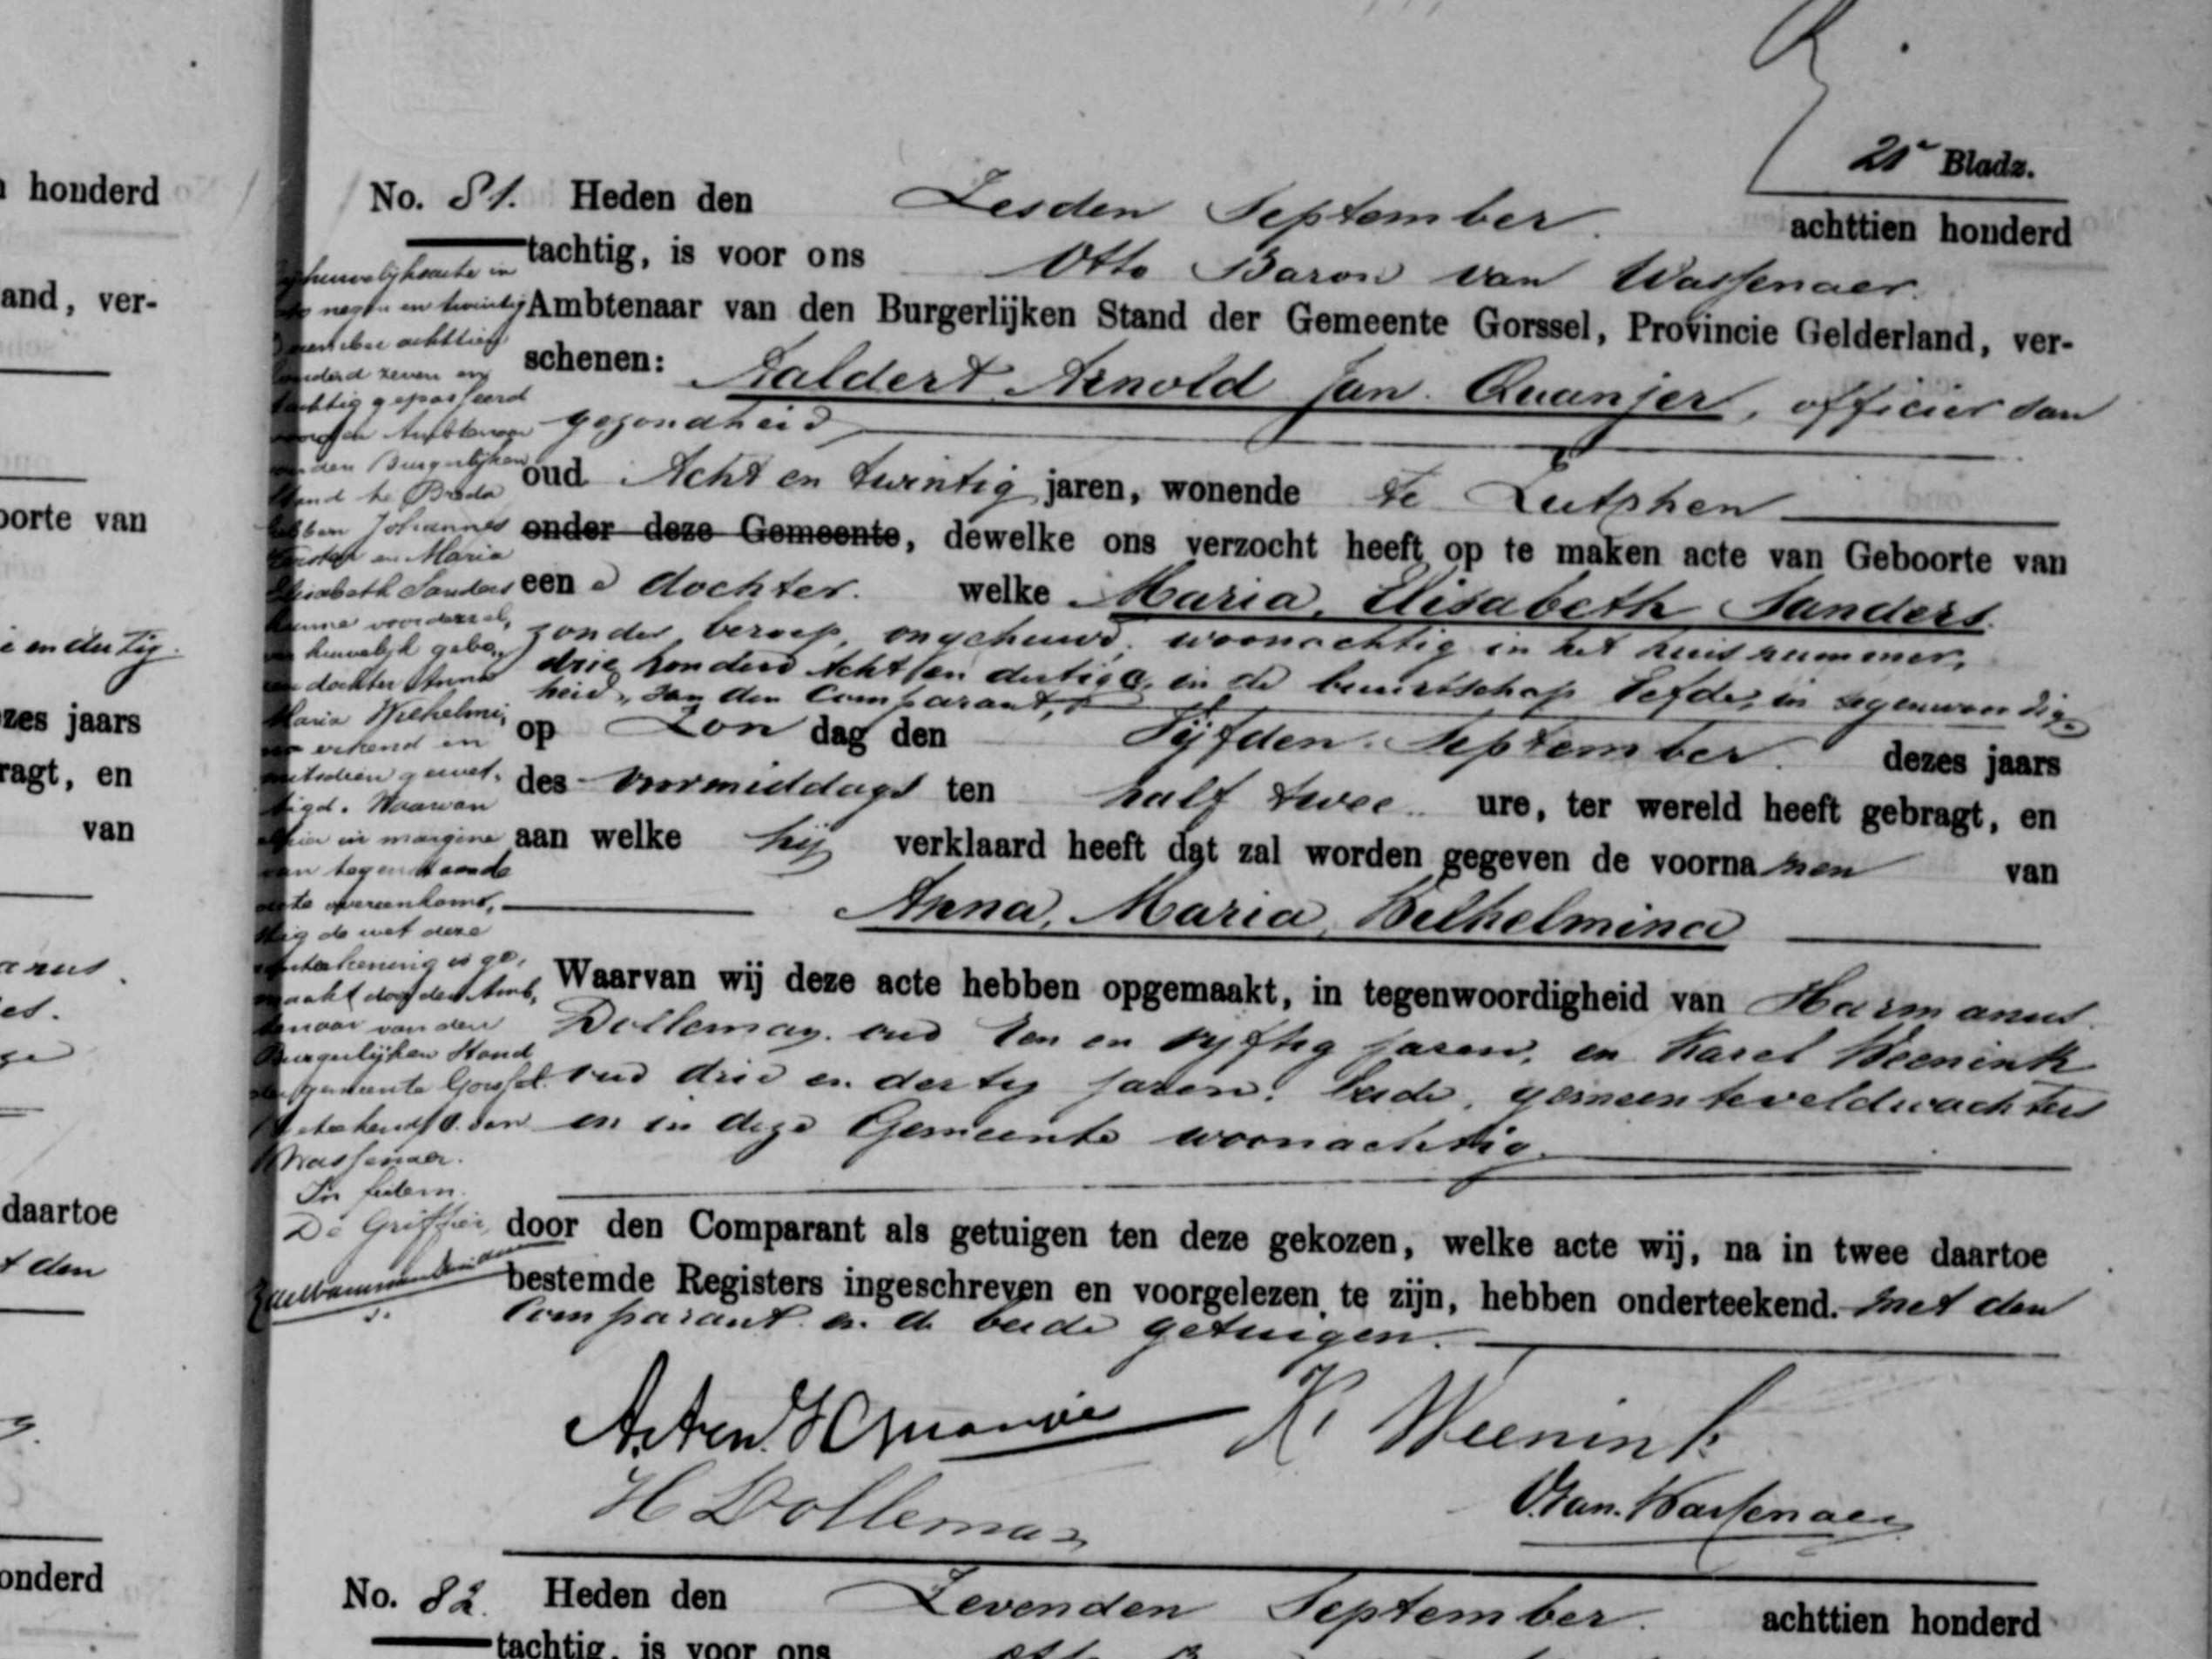 honderd
and, ver-
oorte van
e en dertig.
zes jaars
ragt, en
van
arus.
es.
daartoe
t den
onderd
21e Bladz.
No. 81. Heden den Zesden September. achttien honderd
tachtig, is voor ons Otto Baron van Wassenaer.
Ambtenaar van den Burgerlijken Stand der Gemeente Gorssel, Provincie Gelderland, ver-
schenen: Aaldert Arnold Jan Quanjer, officier van
gezondheid
oud Acht en twintig jaren, wonende te Zutphen
onder deze Gemeente, dewelke ons verzocht heeft op te maken acte van Geboorte van
een e dochter. welke Maria, Elisabeth Sanders.
zonder beroep, ongehuwd, woonachtig in het huis nummer,
drie honderd Acht en dertig a, in de buurtschap Eefde, in tegenwoordig-
heid, van den Comparant,
op Zon dag den Vijfden September. dezes jaars
des voormiddags ten half twee ure, ter wereld heeft gebragt, en
aan welke hij verklaard heeft dat zal worden gegeven de voorna men van
Anna, Maria, Wilhelmina
Waarvan wij deze acte hebben opgemaakt, in tegenwoordigheid van Harmanus
Dolleman oud een en vyftig jaren, en Karel Weenink
oud drie en dertig jaren, beide, gemeenteveldwachters
en in deze Gemeente woonachtig.
door den Comparant als getuigen ten deze gekozen, welke acte wij, na in twee daartoe
bestemde Registers ingeschreven en voorgelezen te zijn, hebben onderteekend. met den
Comparant en de beide getuigen.
huwelijksacte in
negen en twintig
achttien
honderd zeven en
tachtig gepasseerd
voor den Ambtenaar
van den Burgerlijken
Stand te Breda
hebben Johannes
en Maria
Elisabeth Sanders
hunne voor dezel,
huwelijk gebo,
dochter Anna
Maria Wilhelmi,
na erkend en
mitsdien gewet,
tigd. Waarvan
alhier in margine
van tegenstaande
acte overeenkoms,
tig de wet deze
aanteekening is ge,
maakt door den Amb,
tenaar van den
Burgerlijken Stand
der gemeente Gorssel.
(get.) O. van
Wassenaer.
In fidem.
De Griffier,
A. Arn. J Quanjer K. Weenink
H Dolleman O. van. Wassenaer
No. 82. Heden den Zevenden September. achttien honderd
tachtig, is voor ons